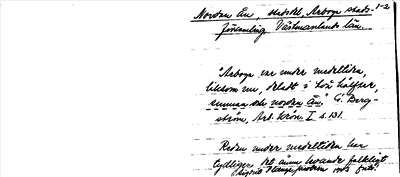 Norden Ån, stadsdel, Arboga stads- 1-2
församling Västmanlands län.
"Arboga var under medeltiden,
liksom nu, deladt i två hälfter,
sunnan och nordan ån." G. Berg-
ström, Arb. krön. I s. 131.
Redan under medeltiden har
tydligen det ännu levande folkligt